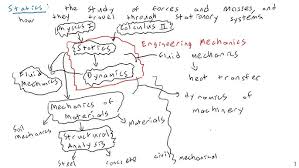 Statics: the study of forces and masses, and
how they travel through stationary systems.
Physics I
Calculus II
Engineering Mechanics
Statics
Fluid
Mechanics
Fluid mechanics
Dynamics
heat transfer
Mechanics of
Materials
dynamics of
machinery
Soil
mechanics
Materials
Structural
Analysis
Steel
concrete
civil
mechanical